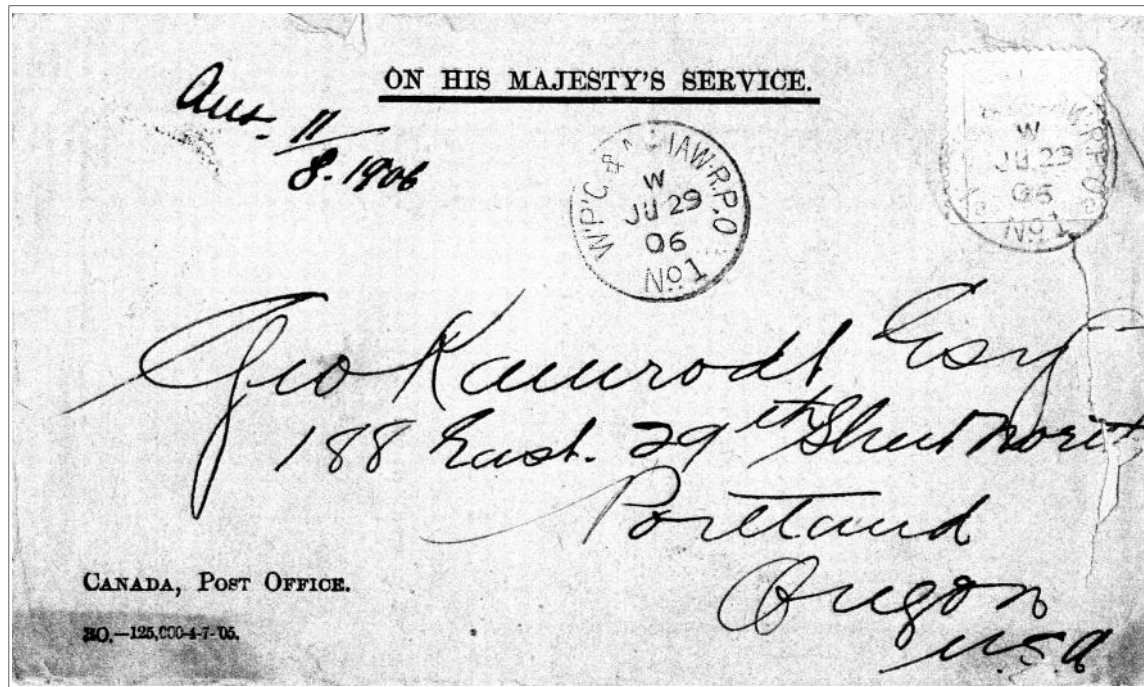 ON HIS MAJESTY'S SERVICE.
Ans. 11/8. 1906
W.P'G & MAW-R.P.O
W
JU 29
06
No 1
W
JU 29
06
No 1
Geo Kamrodt Esq
188 East. 29th Street North
Portland
Oregon
U.S.A
CANADA, POST OFFICE.
30.—125,000-4-7-'05.